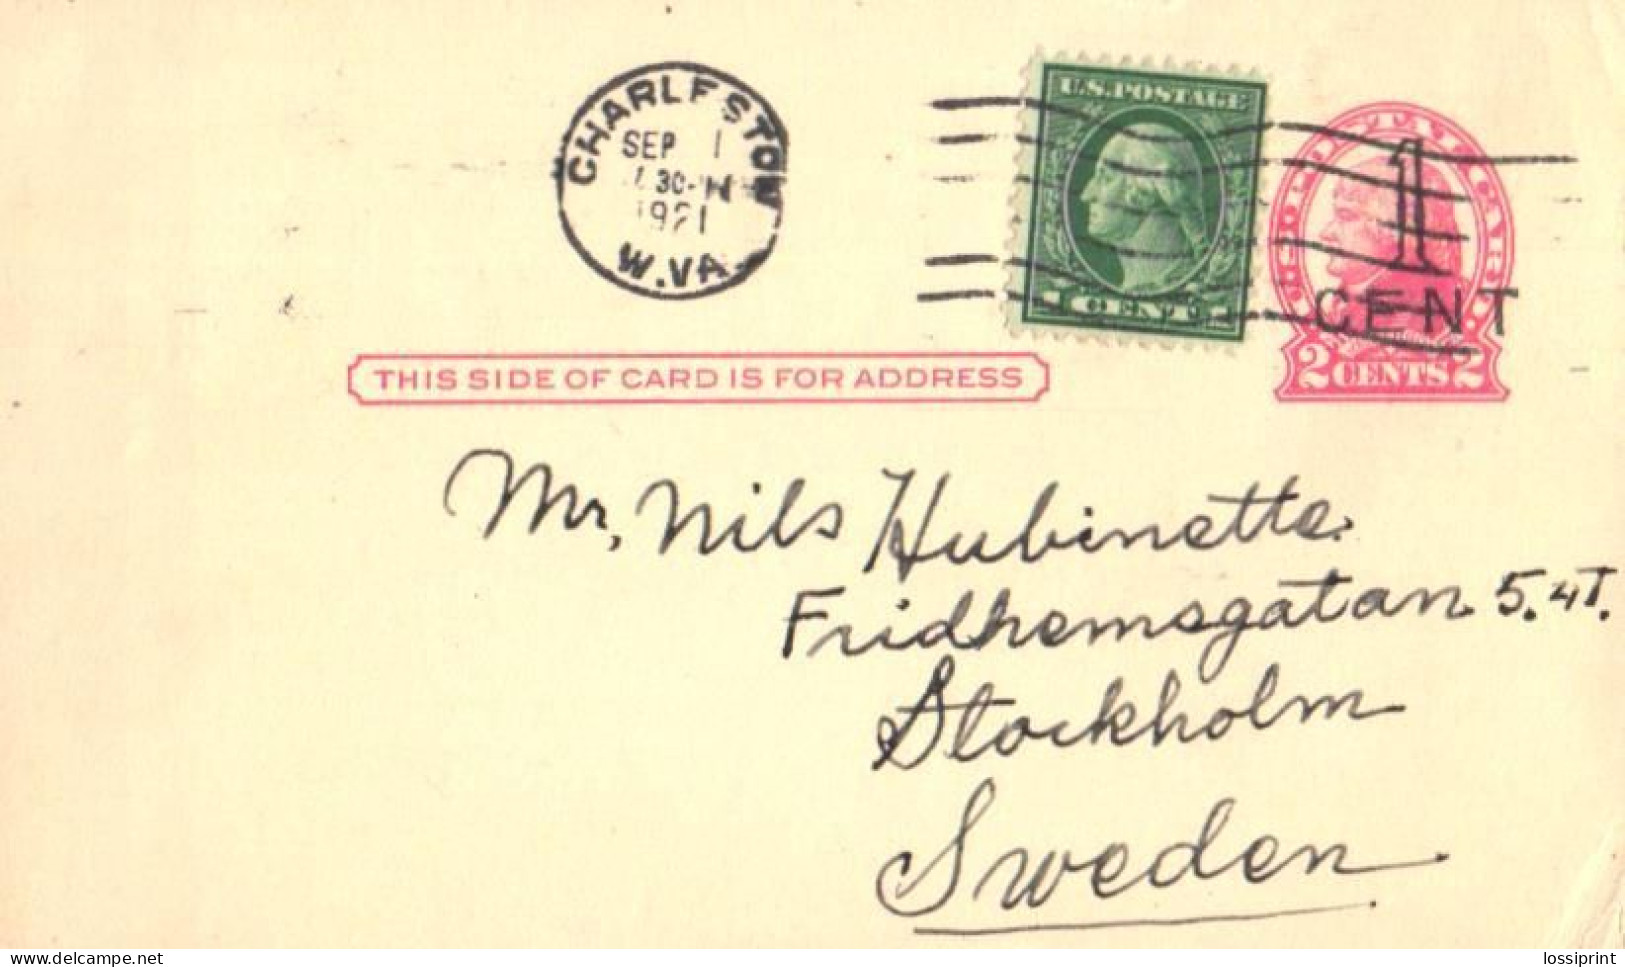 CHARLESTON
SEP 1
30
1921
W.VA.
U.S.POSTAGE
1 CENT 1
U.S. POSTAL CARD
1
CENT
2 CENTS 2
THIS SIDE OF CARD IS FOR ADDRESS
Mr, Nils Hubinette.
Fridhemsgatan 5. 4T.
Stockholm
Sweden
www.delcampe.net
lossiprint